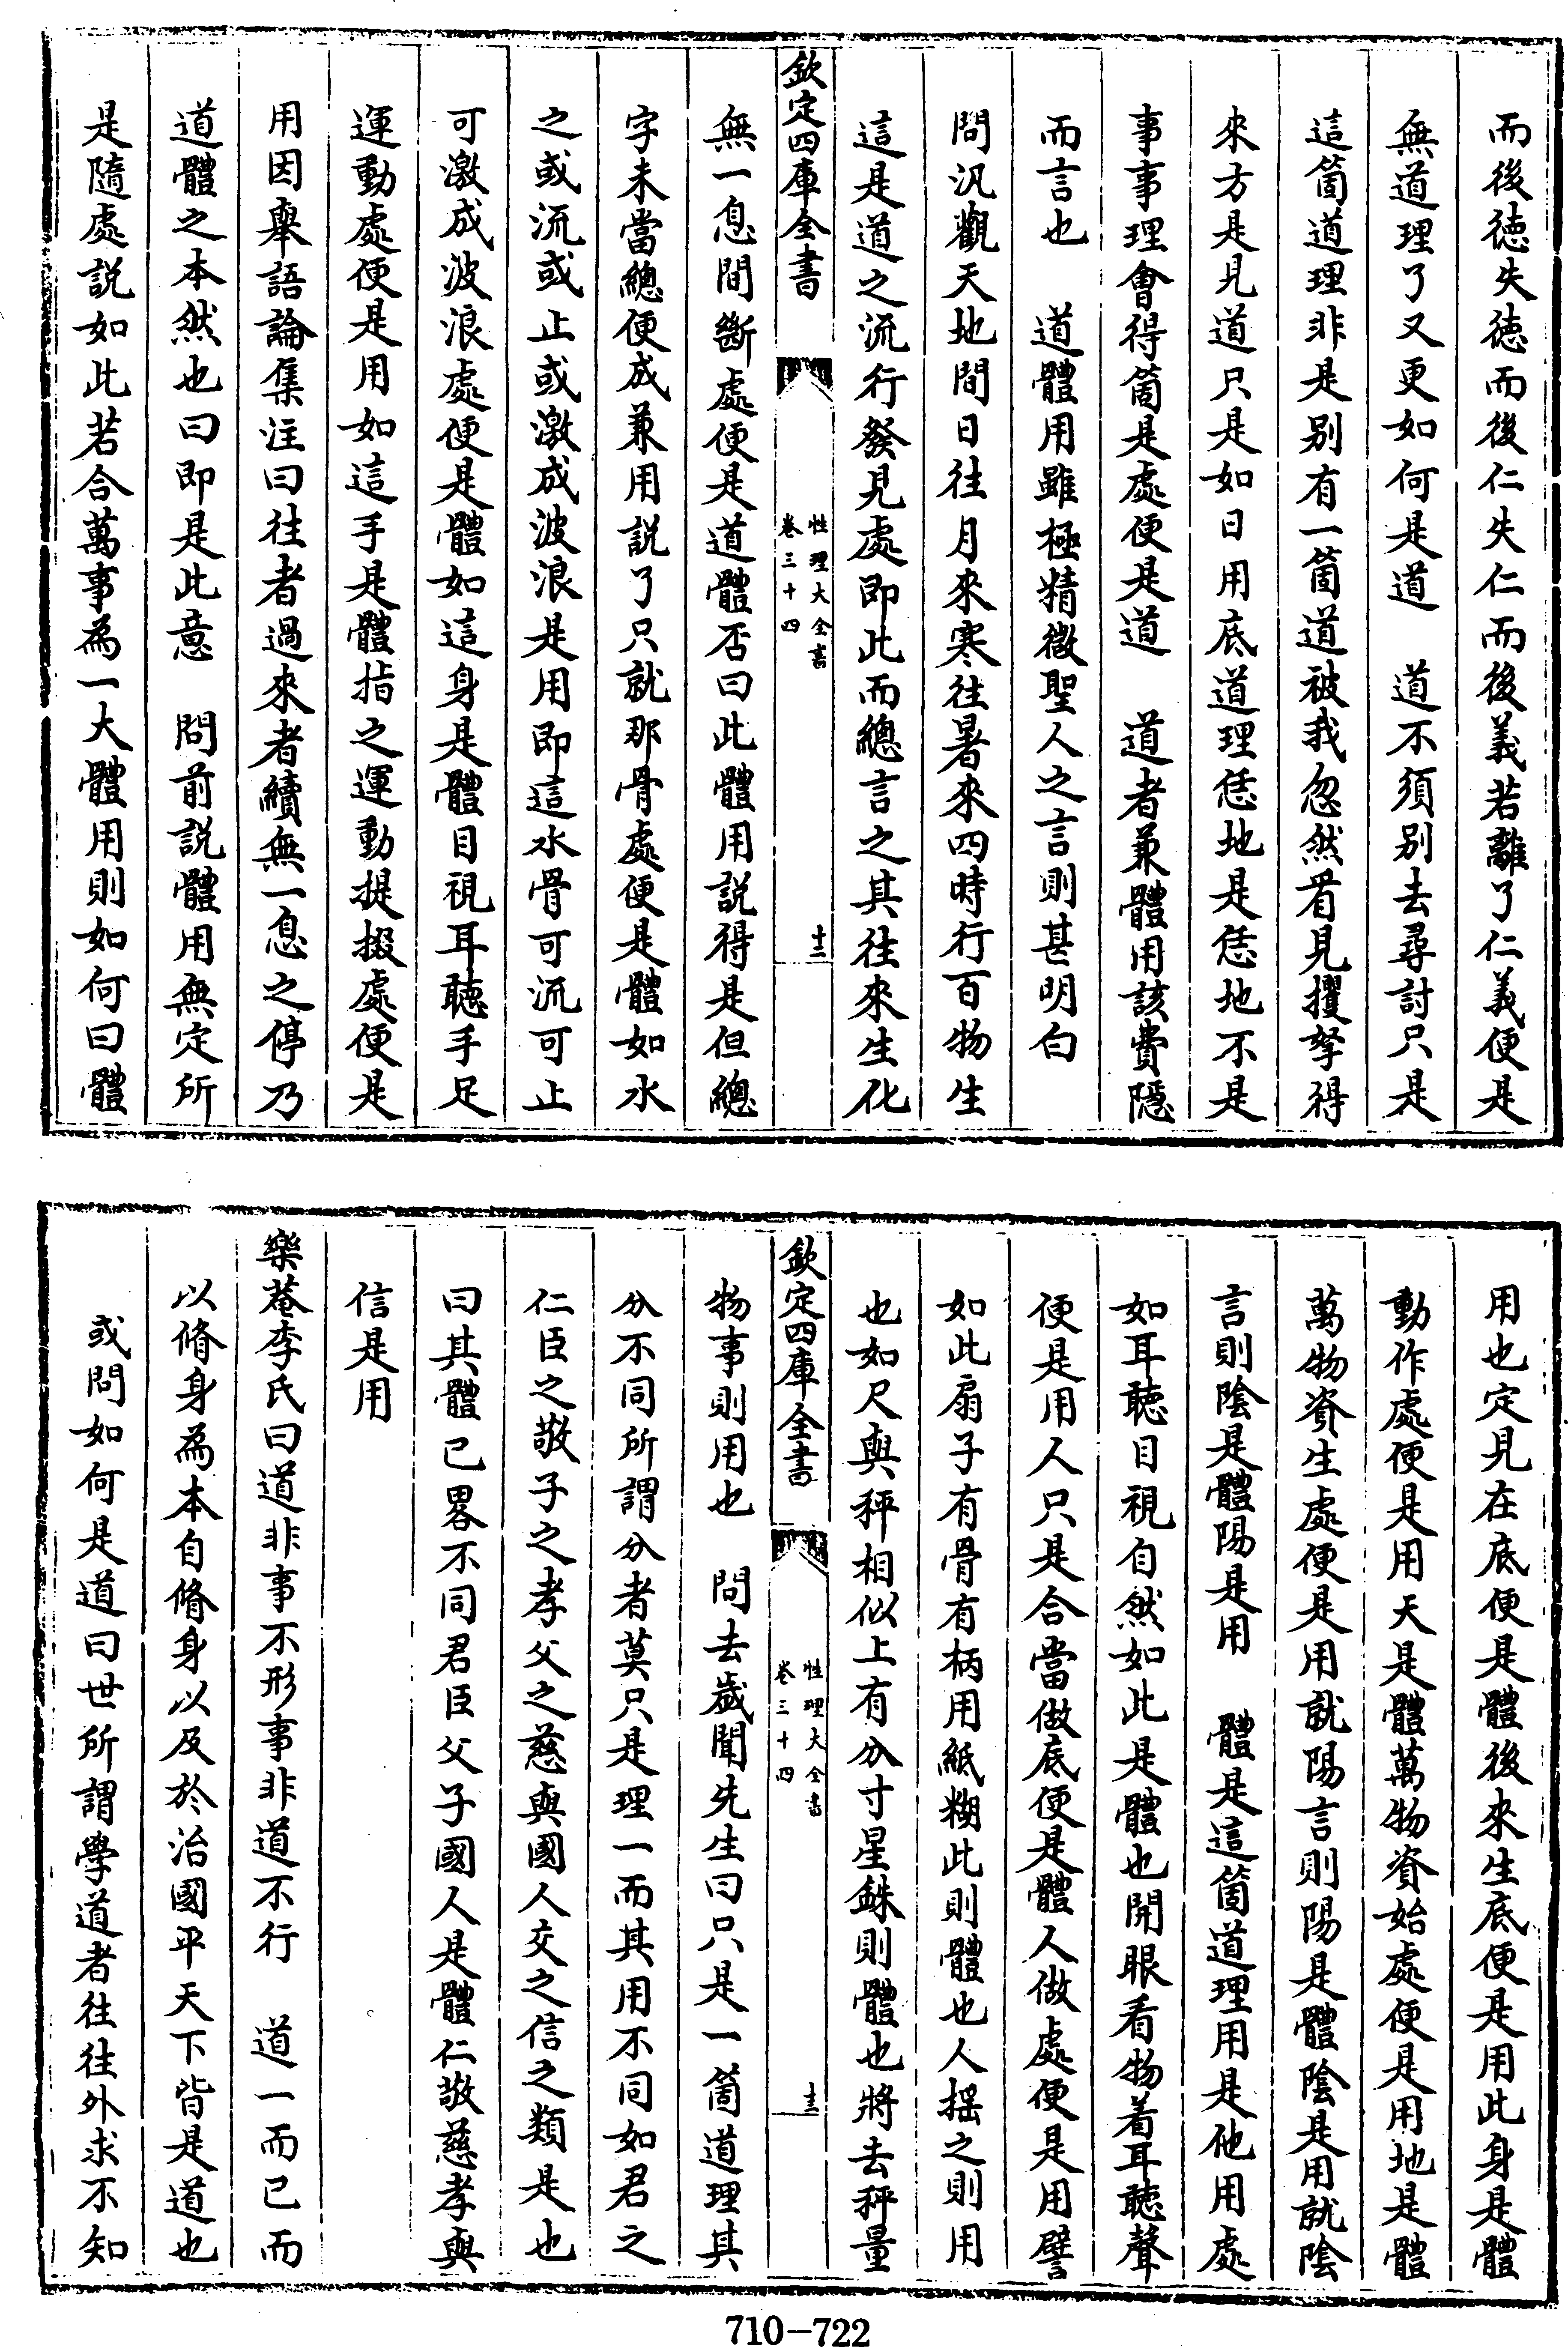 而後徳失徳而後仁失仁而後義若離了仁義便是
無道理了又更如何是道　道不須别去尋討只是
這箇道理非是别有一箇道被我忽然看見攫拏得
來方是見道只是如日用底道理恁地是恁地不是
事事理會得箇是處便是道　道者兼體用該費隱
而言也　道體用雖極精微聖人之言則甚明白
問汎觀天地間日往月來寒往暑來四時行百物生
這是道之流行發見處即此而總言之其往來生化
欽定四庫全書
性理大全書
卷三十四
十二
無一息間斷處便是道體否曰此體用説得是但總
字未當總便成兼用説了只就那骨處便是體如水
之或流或止或激成波浪是用即這水骨可流可止
可激成波浪處便是體如這身是體目視耳聽手足
運動處便是用如這手是體指之運動提掇處便是
用因舉語論集注曰往者過來者續無一息之停乃
道體之本然也曰即是此意　問前説體用無定所
是隨處説如此若合萬事為一大體用則如何曰體
用也定見在底便是體後來生底便是用此身是體
動作處便是用天是體萬物資始處便是用地是體
萬物資生處便是用就陽言則陽是體陰是用就陰
言則陰是體陽是用　體是這箇道理用是他用處
如耳聽目視自然如此是體也開眼看物着耳聽聲
便是用人只是合當做底便是體人做處便是用譬
如此扇子有骨有柄用紙糊此則體也人揺之則用
也如尺與秤相似上有分寸星銖則體也將去秤量
欽定四庫全書
性理大全書
卷三十四
十三
物事則用也　問去歲聞先生曰只是一箇道理其
分不同所謂分者莫只是理一而其用不同如君之
仁臣之敬子之孝父之慈與國人交之信之類是也
曰其體已畧不同君臣父子國人是體仁敬慈孝與
信是用
樂菴李氏曰道非事不形事非道不行　道一而已而
以脩身為本自脩身以及於治國平天下皆是道也
或問如何是道曰世所謂學道者往往外求不知
710-722